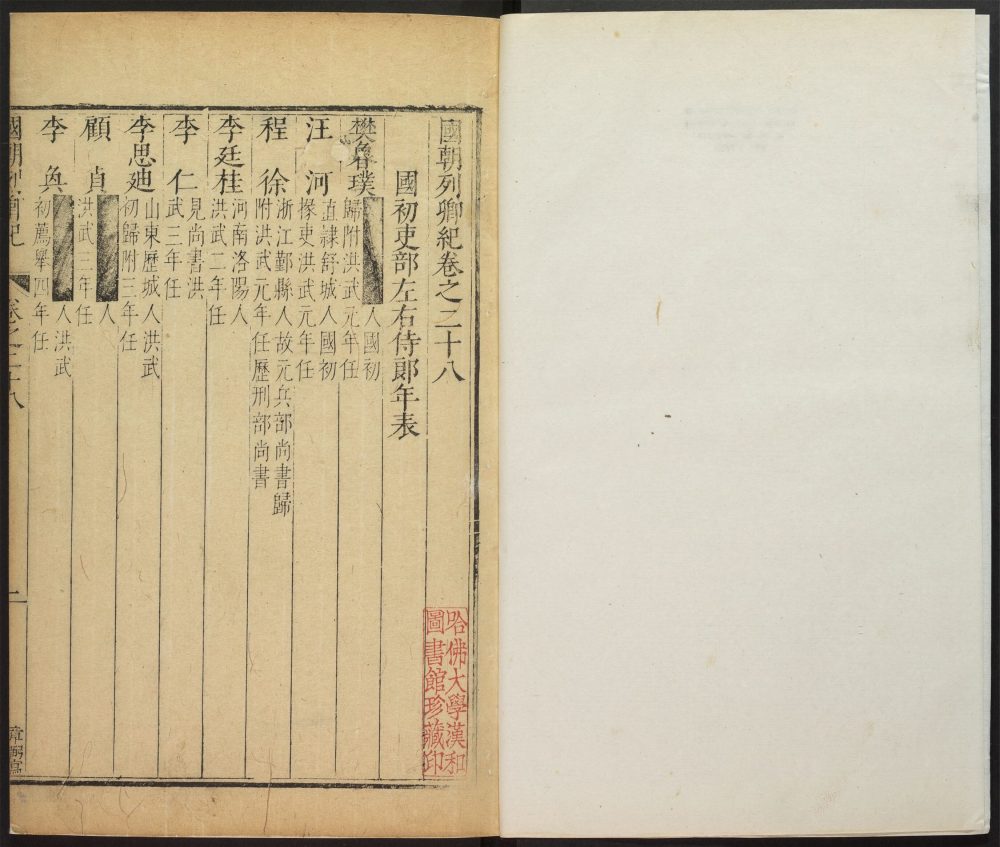 國朝列卿紀卷之二十八
國初吏部左右侍郎年表
樊魯璞 人國初
歸附洪武元年任
汪 河 直隸舒城人國初
掾吏洪武元年任
程 徐 浙江鄞縣人故元兵部尚書歸
附洪武元年任歷刑部尚書
李廷桂 河南洛陽人
洪武二年任
李 仁 見尚書洪
武三年任
李思廸 山東歷城人洪武
初歸附三年任
顧 貞 人
洪武三年任
李 奐 人洪武
初薦舉四年任
國朝列卿紀 卷之二十八
一
哈佛大學漢和
圖書館珍藏印